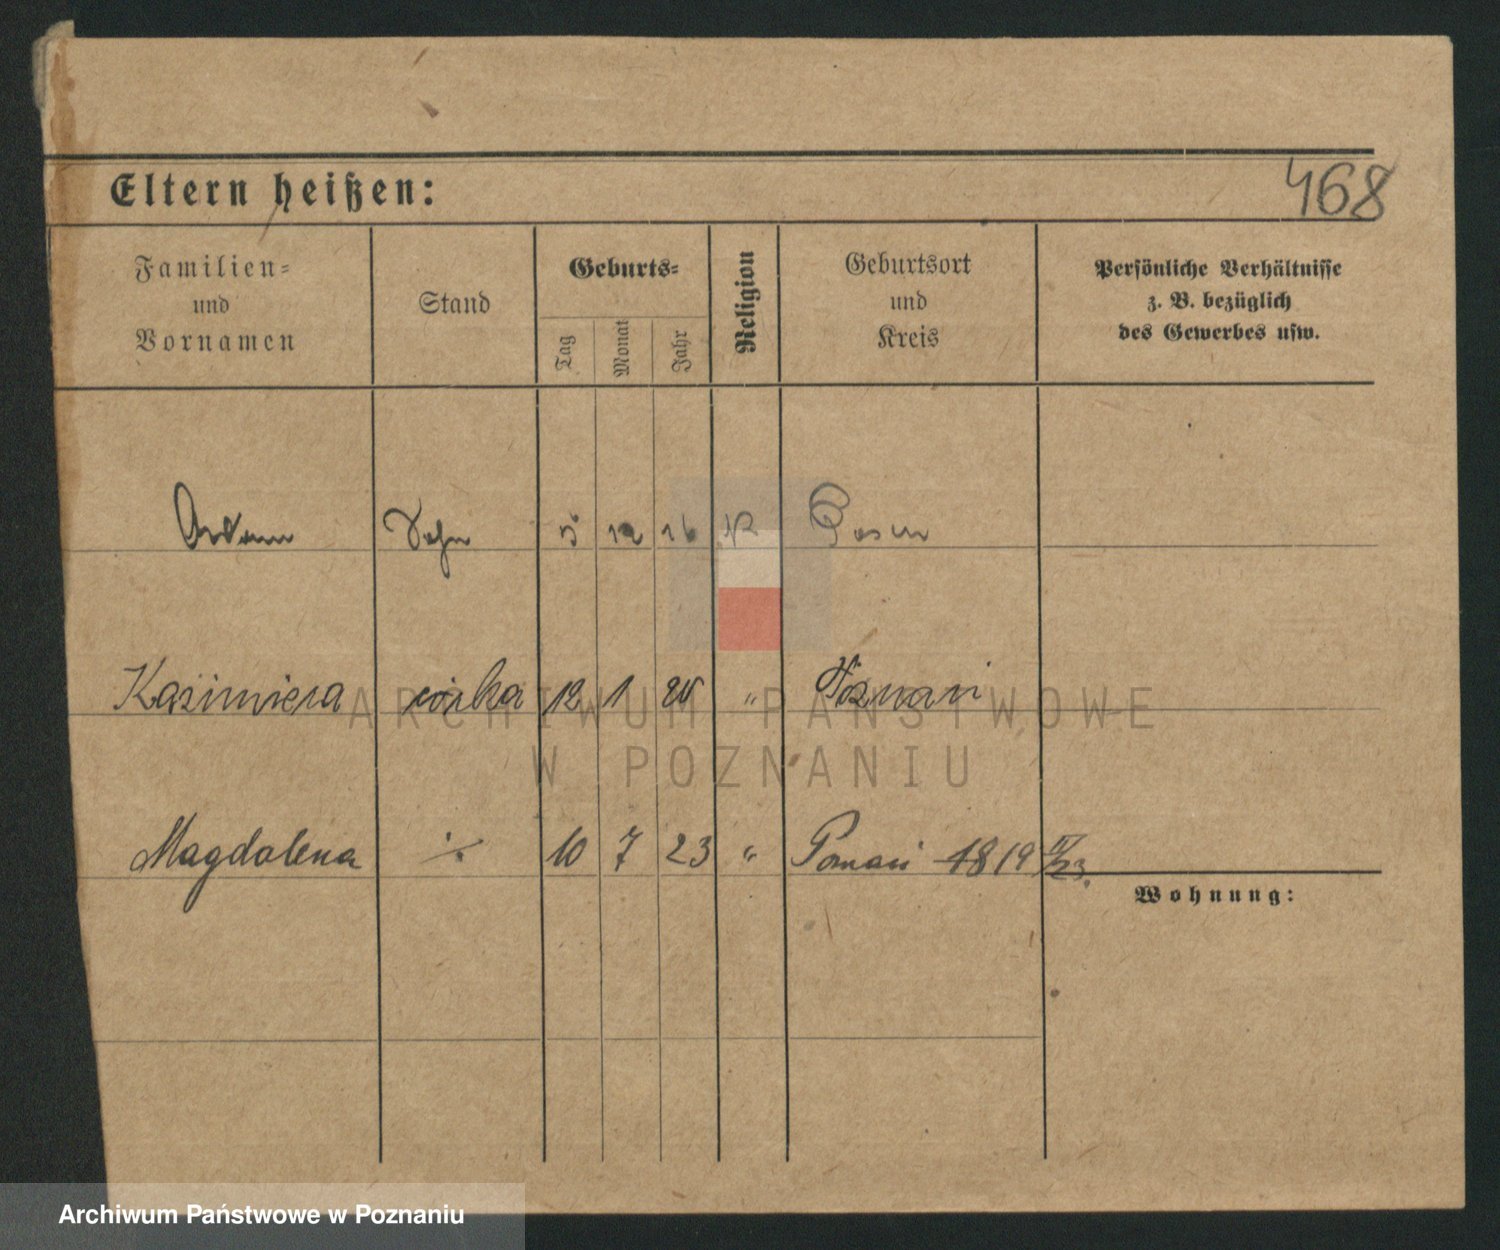 468
Eltern heißen:
Familien=
und
Vornamen
Stand
Geburts=
Tag
Monat
Jahr
Religion
Geburtsort
und
Kreis
Persönliche Verhältnisse
z. B. bezüglich
des Gewerbes usw.
Sohn 5 12 16 Posen
Kazimiera córka 12 1 20 " Poznań
Magdalena 10 7 23 " Poznań 1819
Wohnung:
ARCHIWUM PAŃSTWOWE
W POZNANIU
Archiwum Państwowe w Poznaniu